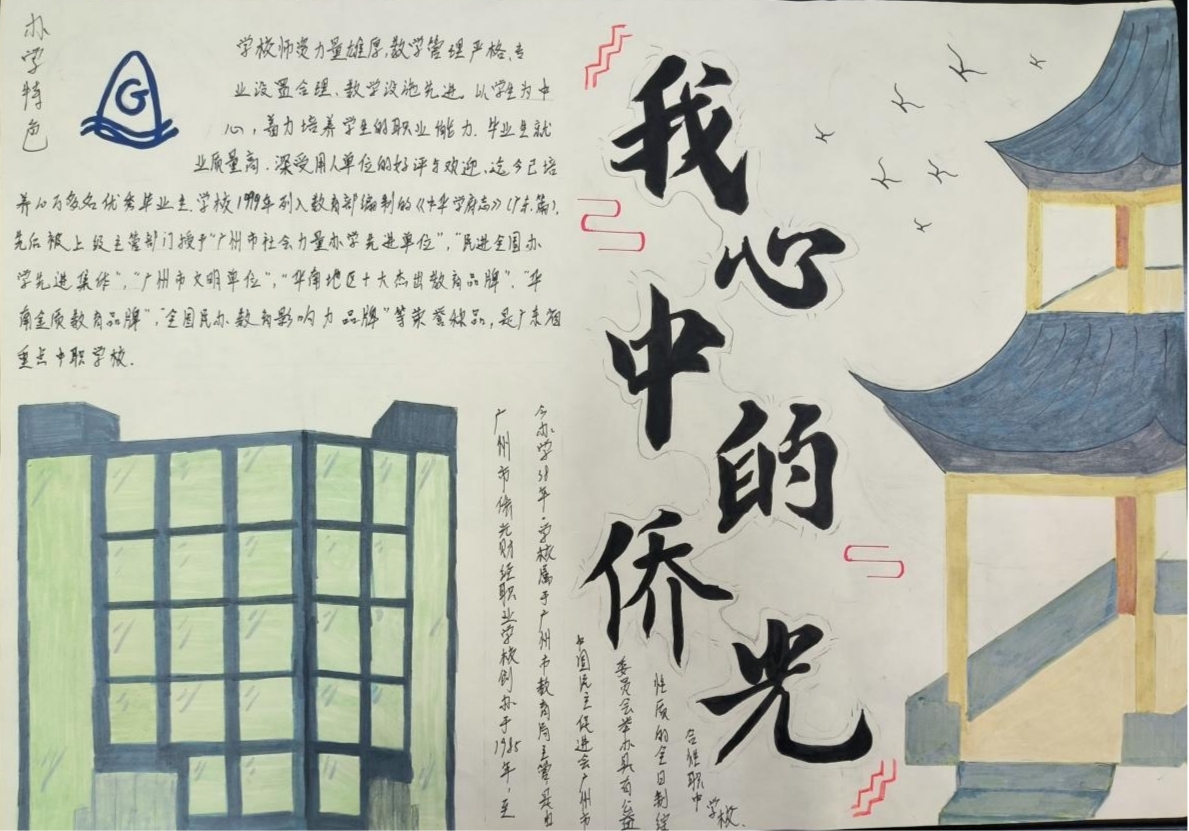 办学特色
G
学校师资力量雄厚,教学管理严格,专
业设置合理、教学设施先进。以学生为中
心,着力培养学生的职业能力。毕业生就
业质量高、深受用人单位的好评与欢迎、迄今已培
养心万多名优秀毕业生。学校1999年列入教育部编制的《中华学府志》(广东篇),
先后被上级主管部门授予“广州市社会力量办学先进单位”,“民进全国办
学先进集体”,“广州市文明单位”,“华南地区十大杰出教育品牌”,“华
南金质教育品牌”,“全国民办教育影响力品牌”等荣誉称号,是广东省
重点中职学校.
我心中的侨光
广州市侨光财经职业学校创办于1985年,至
今办学38年。学校属于广州市教育局主管是由
中国民主促进会广州市
委员会举办具有公益
性质的全日制综
合性职中
学校.